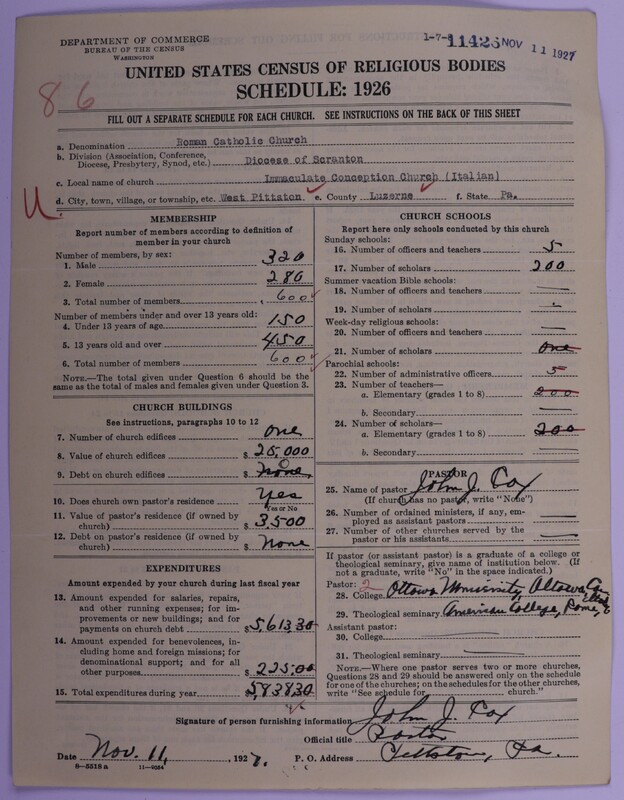 DEPARTMENT OF COMMERCE
BUREAU OF THE CENSUS
WASHINGTON
1-7-
11426 NOV 11 1927
UNITED STATES CENSUS OF RELIGIOUS BODIES
SCHEDULE: 1926
86
FILL OUT A SEPARATE SCHEDULE FOR EACH CHURCH. SEE INSTRUCTIONS ON THE BACK OF THIS SHEET
a. Denomination Roman Catholic Church
b. Division (Association, Conference, Diocese, Presbytery, Synod, etc.) Diocese of Scranton
c. Local name of church Immaculate Conception Church (Italian)
d. City, town, village, or township, etc. West Pittston e. County Luzerne f. State Pa.
U.
MEMBERSHIP
Report number of members according to definition of
member in your church
Number of members, by sex:
1. Male 320
2. Female 280
3. Total number of members 600
Number of members under and over 13 years old:
4. Under 13 years of age 150
5. 13 years old and over 450
6. Total number of members 600
NOTE.—The total given under Question 6 should be the
same as the total of males and females given under Question 3.
CHURCH BUILDINGS
See instructions, paragraphs 10 to 12
7. Number of church edifices One
8. Value of church edifices $ 25,000
9. Debt on church edifices $ None
10. Does church own pastor's residence Yes
Yes or No
11. Value of pastor's residence (if owned by
church) $ 3,500
12. Debt on pastor's residence (if owned by
church) $ None
EXPENDITURES
Amount expended by your church during last fiscal year
13. Amount expended for salaries, repairs,
and other running expenses; for im-
provements or new buildings; and for
payments on church debt $ 5,613.30
14. Amount expended for benevolences, in-
cluding home and foreign missions; for
denominational support; and for all
other purposes $ 225.00
15. Total expenditures during year $ 5,838.30
CHURCH SCHOOLS
Report here only schools conducted by this church
Sunday schools:
16. Number of officers and teachers 5
17. Number of scholars 200
Summer vacation Bible schools:
18. Number of officers and teachers —
19. Number of scholars
Week-day religious schools:
20. Number of officers and teachers —
21. Number of scholars One
Parochial schools:
22. Number of administrative officers 5
23. Number of teachers—
a. Elementary (grades 1 to 8) 200
b. Secondary —
24. Number of scholars—
a. Elementary (grades 1 to 8) 200
b. Secondary —
PASTOR
25. Name of pastor John J. Cox
(If church has no pastor, write "None")
26. Number of ordained ministers, if any, em-
ployed as assistant pastors —
27. Number of other churches served by the
pastor or his assistants —
If pastor (or assistant pastor) is a graduate of a college or
theological seminary, give name of institution below. (If
not a graduate, write "No" in the space indicated.)
Pastor: 2
28. College Ottawa University, Ottawa,
29. Theological seminary American College, Rome,
Assistant pastor:
30. College
31. Theological seminary
NOTE.—Where one pastor serves two or more churches,
Questions 28 and 29 should be answered only on the schedule
for one of the churches; on the schedules for the other churches,
write "See schedule for church."
Signature of person furnishing information John J. Cox
Official title Pastor
Date Nov. 11, 1927. P. O. Address Pittston, Pa.
8-5318a 11-9054